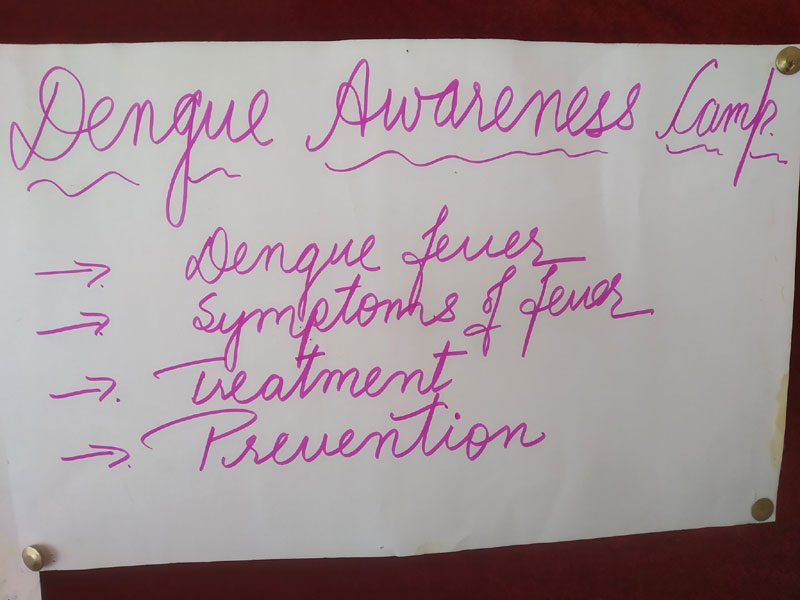 Dengue Awareness Camp.
→ Dengue fever
→ Symptoms of fever
→ Treatment
→ Prevention